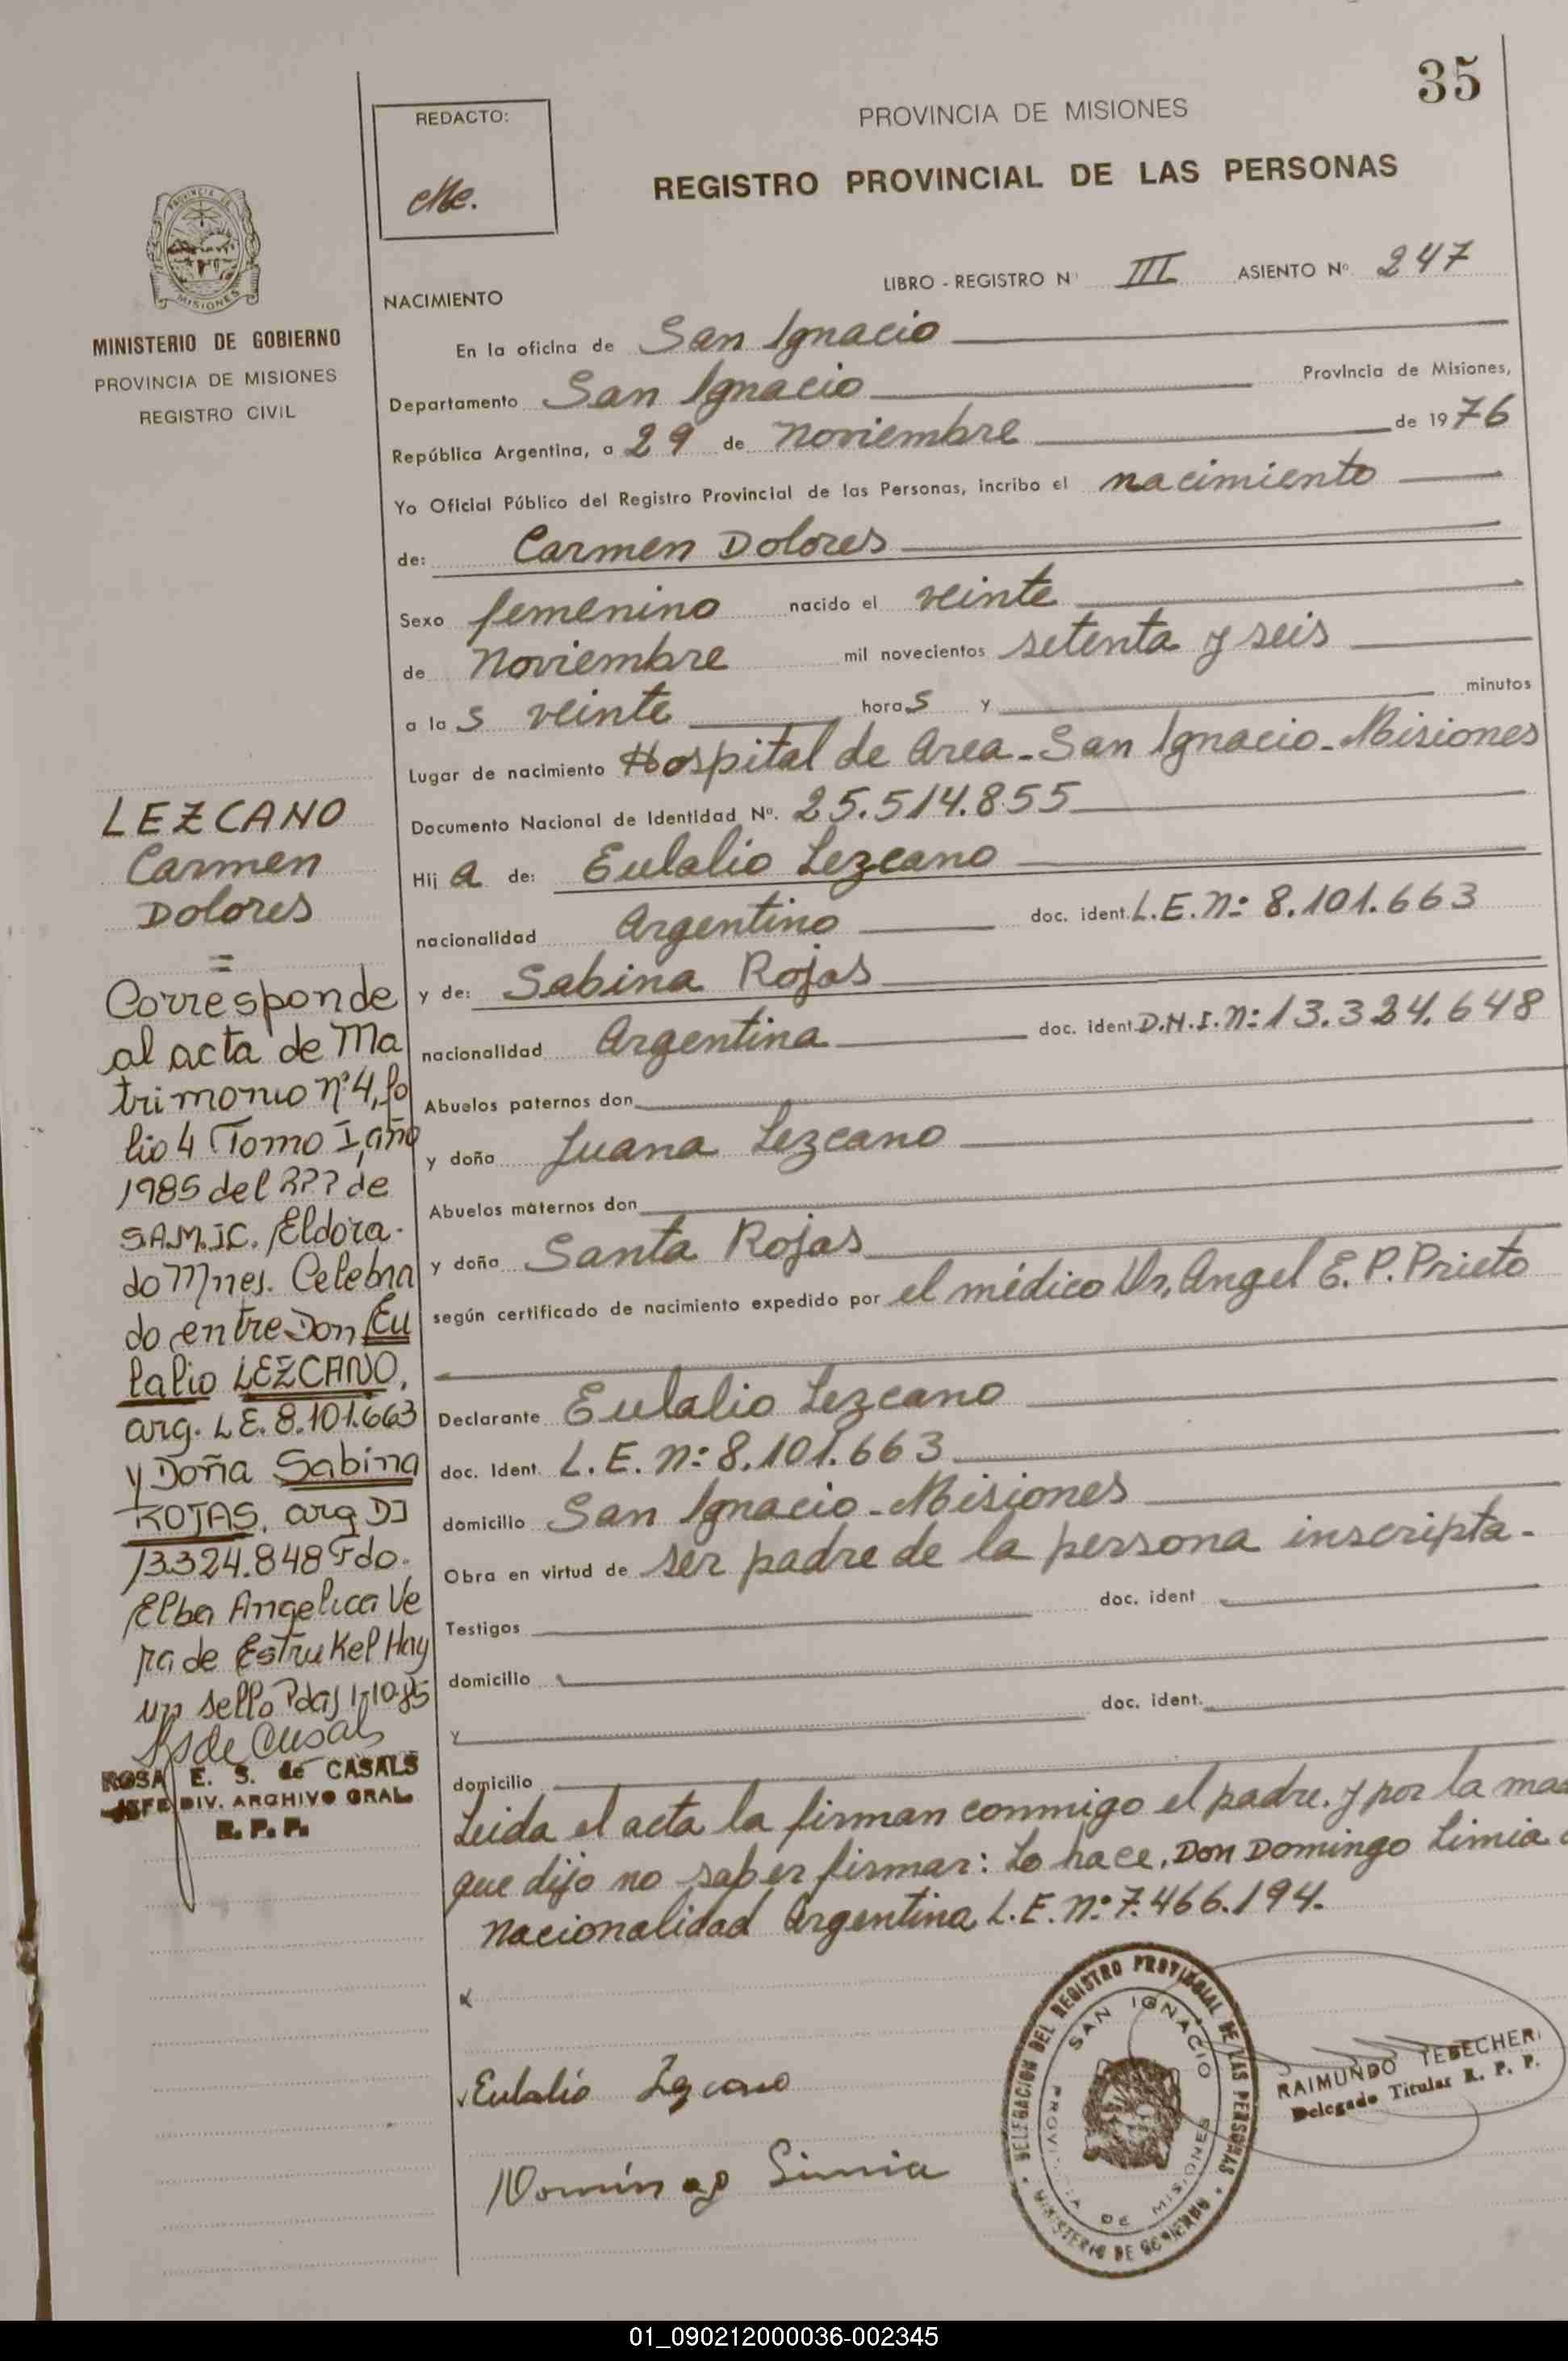 35
REDACTO:
PROVINCIA DE MISIONES
REGISTRO PROVINCIAL DE LAS PERSONAS
PROVINCIA DE
MISIONES
MINISTERIO DE GOBIERNO
PROVINCIA DE MISIONES
REGISTRO CIVIL
LIBRO - REGISTRO Nº III ASIENTO Nº 247
NACIMIENTO
En la oficina de San Ignacio
Departamento San Ignacio Provincia de Misiones,
República Argentina, a 29 de Noviembre de 1976
Yo Oficial Público del Registro Provincial de las Personas, incribo el nacimiento
de: Carmen Dolores
Sexo femenino nacido el veinte
de Noviembre mil novecientos setenta y seis
a las veinte horas y minutos
Lugar de nacimiento Hospital de Area - San Ignacio - Misiones
Documento Nacional de Identidad Nº. 25.514.855
Hija de: Eulalio Lezcano
nacionalidad Argentino doc. ident. L.E. Nº: 8.101.663
y de: Sabina Rojas
nacionalidad Argentina doc. ident. D.N.I. Nº: 13.324.648
Abuelos paternos don
y doña Juana Lezcano
Abuelos maternos don
y doña Santa Rojas
según certificado de nacimiento expedido por el médico Dr. Angel E. P. Prieto
Declarante Eulalio Lezcano
doc. Ident. L. E. Nº: 8.101.663
domicilio San Ignacio - Misiones
Obra en virtud de ser padre de la persona inscripta.
Testigos doc. ident
domicilio
y doc. ident.
domicilio
Leida el acta la firman conmigo el padre. y por la
que dijo no saber firmar: Lo hace, Don Domingo Limia
nacionalidad Argentina L.E. Nº: 7.466.194.
LEZCANO
Carmen
Dolores
=
Corresponde
al acta de Ma
trimonio nº 4, fo
lio 4 Tomo I, año
1985 del RPP de
SAMIC. Eldora-
do Mnes. Celebra
do entre Don Eu
lalio LEZCANO,
arg. L.E. 8.101.663
y Doña Sabina
ROJAS, arg DI
13.324.848 Fdo.
Elba Angelica Ve
ra de Estrukel Hay
un sello Pdas 1-10-85
ROSA E. S. de CASALS
JEFE DIV. ARCHIVO GRAL.
R. P. P.
Eulalio Lezcano
Domingo Limia
DELEGACION DEL REGISTRO PROVINCIAL DE LAS PERSONAS
MINISTERIO DE GOBIERNO
SAN IGNACIO
PROVINCIA DE MISIONES
RAIMUNDO TEBECHERI
Delegado Titular R. P. P.
01_090212000036-002345